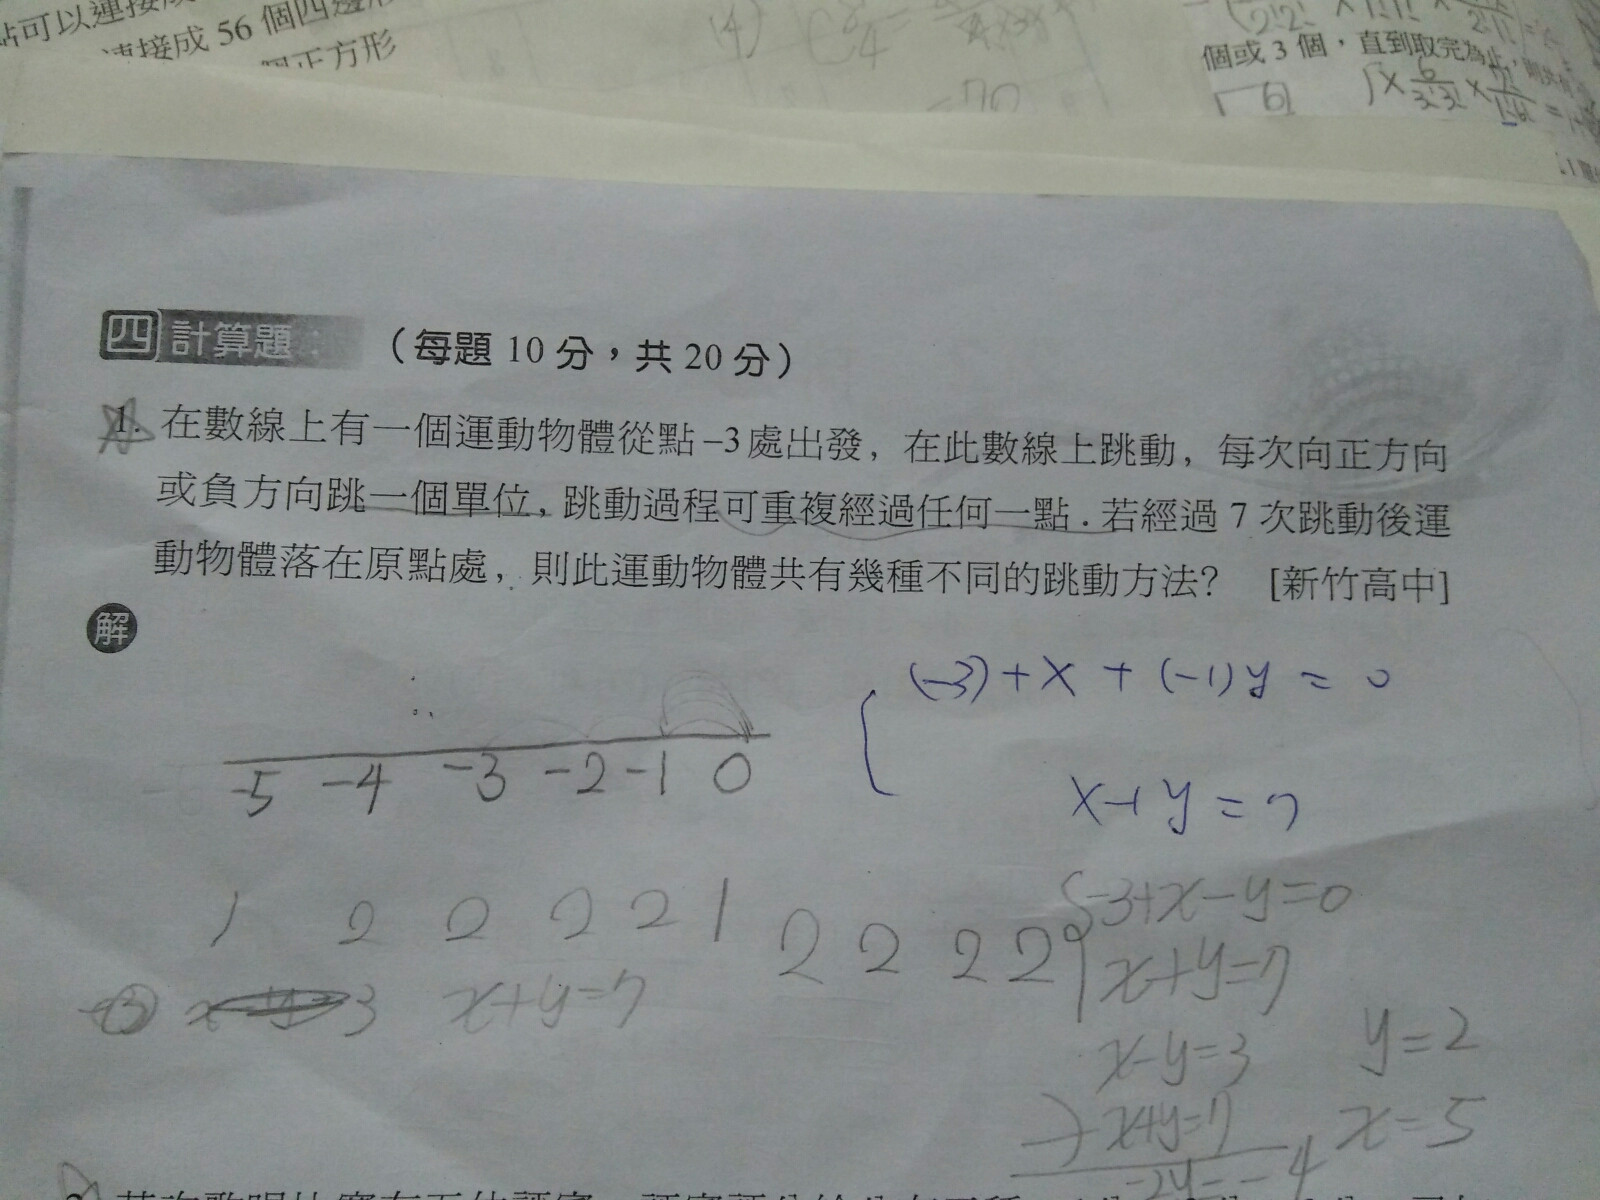 點可以連接成
連接成 56 個四邊形
個正方形
(4)
個或 3 個，直到取完為止，
四 計算題：（每題 10 分，共 20 分）
1. 在數線上有一個運動物體從點 –3 處出發，在此數線上跳動，每次向正方向
或負方向跳一個單位，跳動過程可重複經過任何一點．若經過 7 次跳動後運
動物體落在原點處，則此運動物體共有幾種不同的跳動方法？ [新竹高中]
解
(-3)+x+(-1)y=0
x+y=7
-5 -4 -3 -2 -1 0
1 2 2 2 2 1 2 2 2 2
-3+x-y=0
x+y=7
3 x+y=7
x-y=3 y=2
-) x+y=7 x=5
-2y=-4